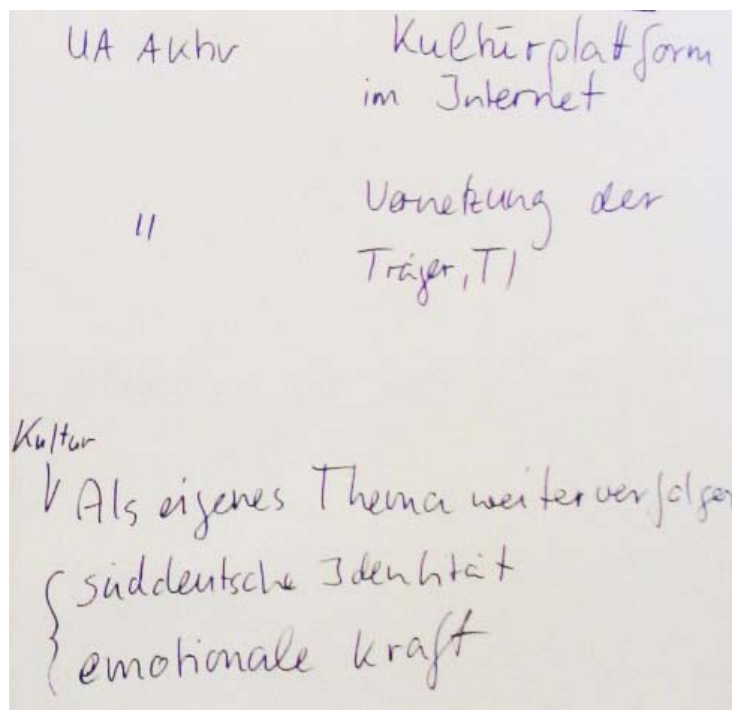 UA Aktiv Kulturplattform
im Internet
" Vernetzung der
Träger, TI
Kultur
Als eigenes Thema weiterverfolgen
süddeutsche Identität
emotionale Kraft